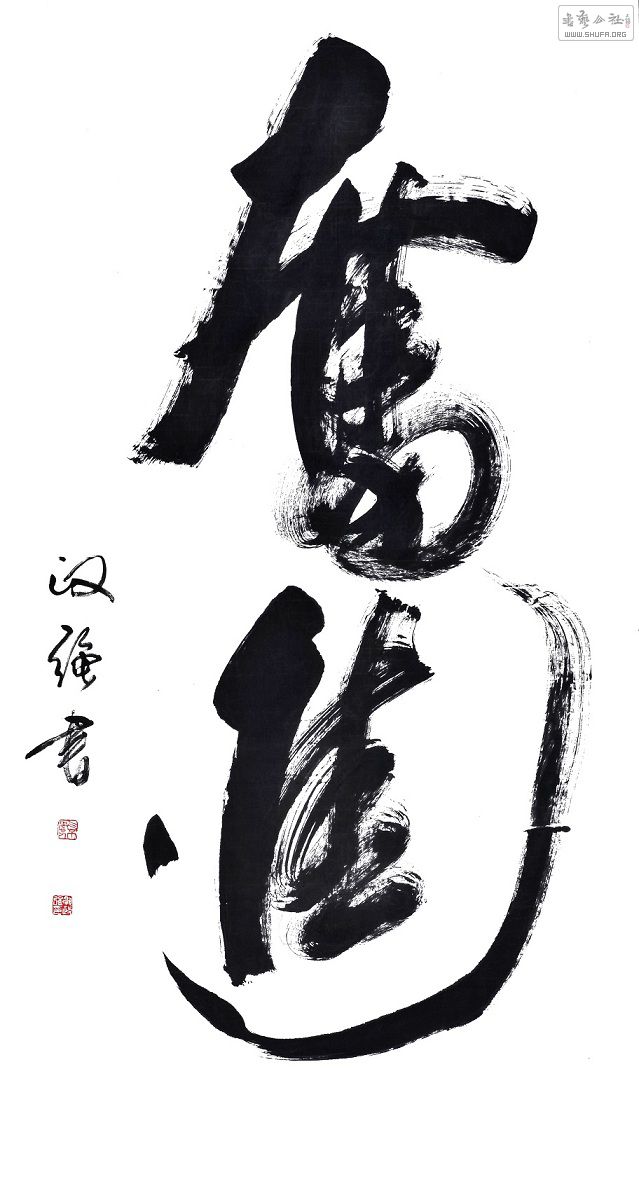 書藝公社
WWW.SHUFA.ORG
奮進
強書